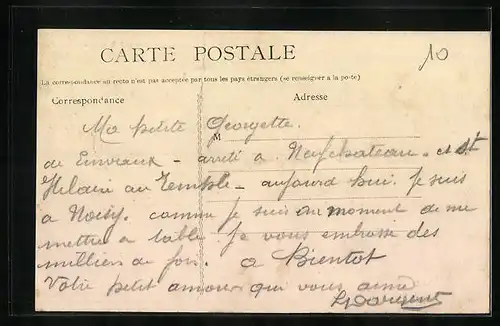 CARTE POSTALE
10
La correspondance au recto n'est pas acceptée par tous les pays étrangers (se renseigner a la poste)
Correspondance
Adresse
M
Ma petite Georgette.
de - arrêté a Neufchateau - et St
Hilaire au Temple - aujourd hui. Je suis
a Noisy. comme je suis au moment de me
mettre a table. Je vous embrasse des
milliers de fois. a Bientot
Votre petit amour qui vous aime